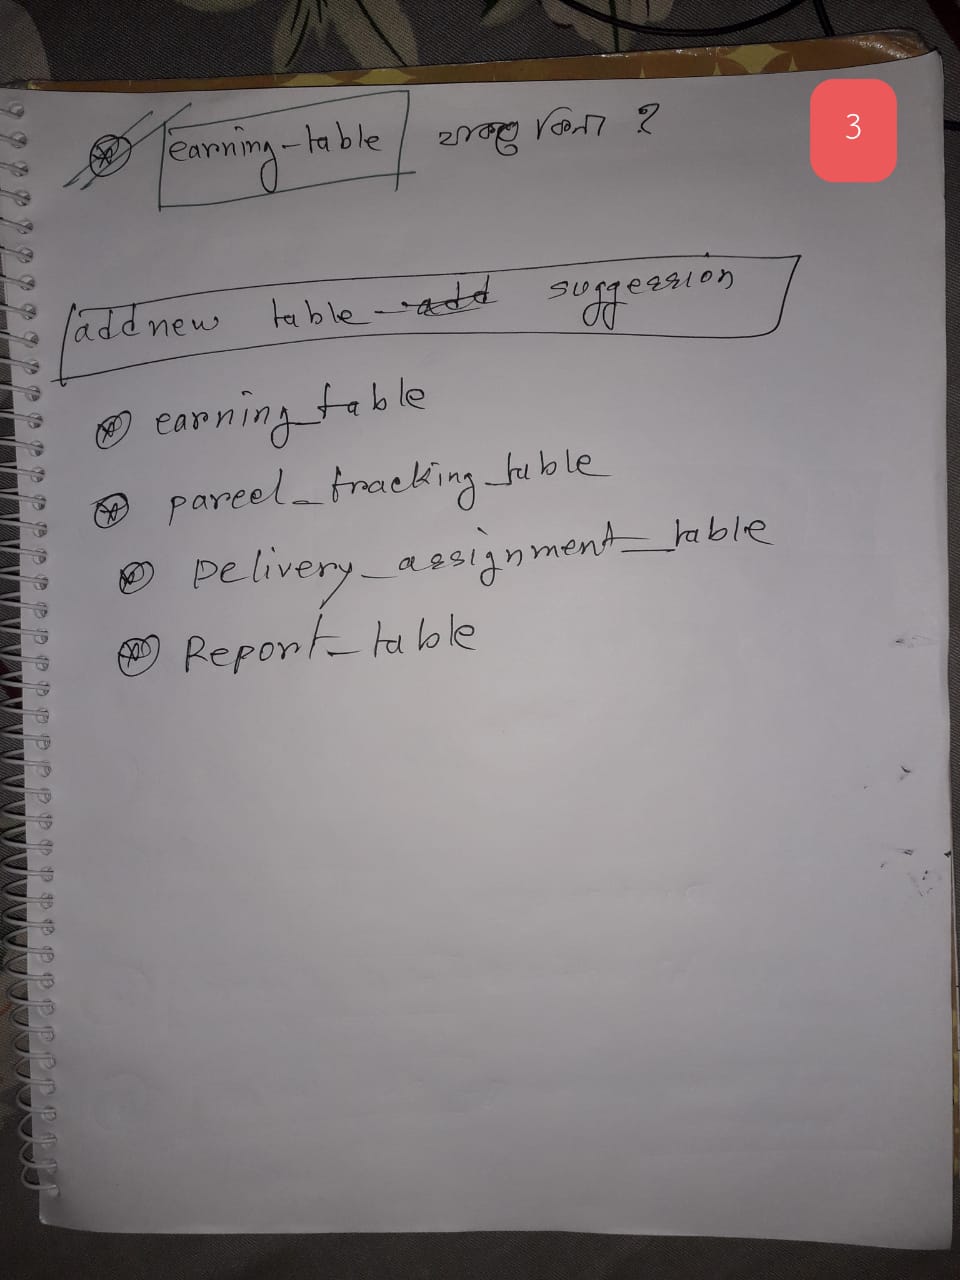 earning-table থাকবে কিনা ?
3
add new table - add suggession
earning_table
parcel_tracking_table
Delivery_assignment_table
Report_table